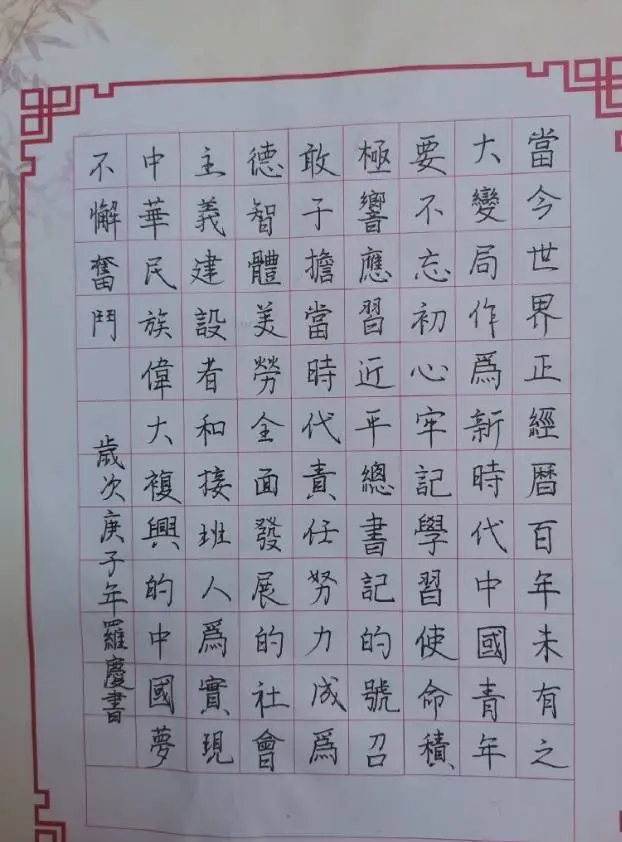 當今世界正經暦百年未有之
大變局作爲新時代中國青年
要不忘初心牢記學習使命積
極響應習近平總書記的號召
敢于擔當時代責任努力成爲
德智體美勞全面發展的社會
主義建設者和接班人爲實現
中華民族偉大複興的中國夢
不懈奮鬥
歲次庚子年羅慶書